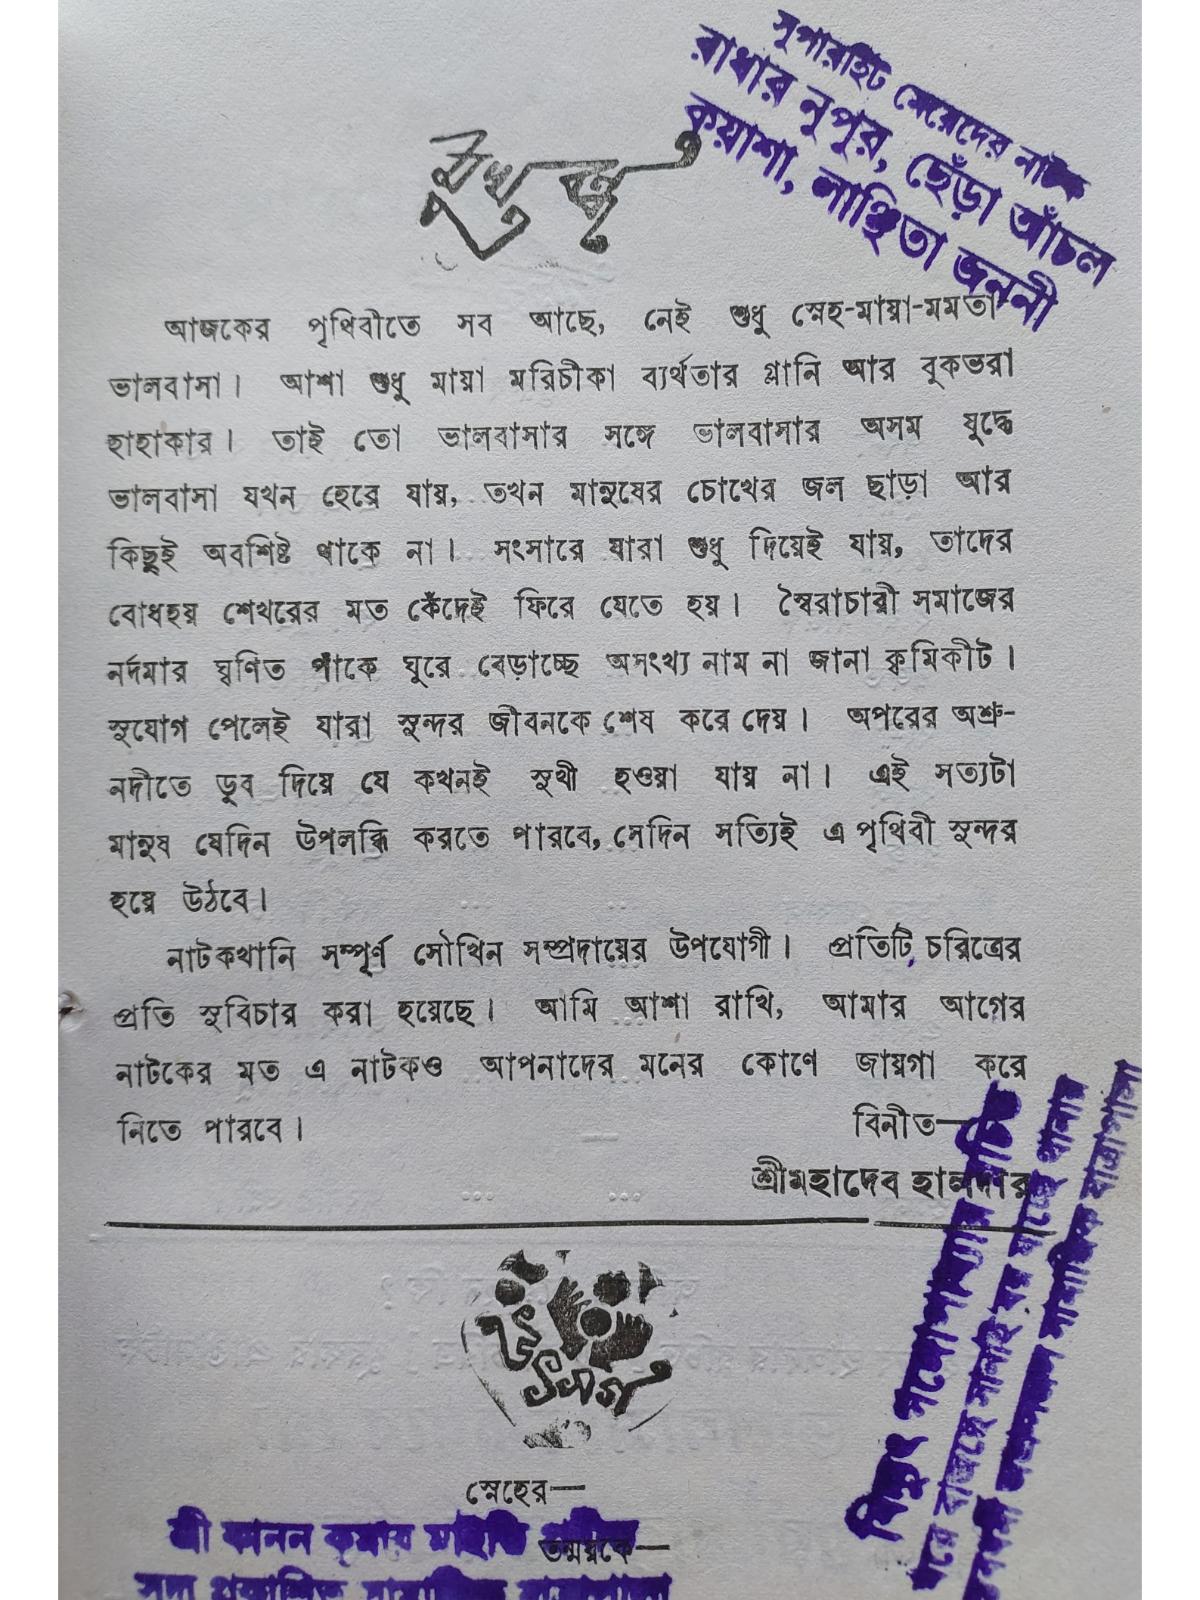 সুপারহিট মেয়েদের নাটক
রাধার নুপুর, ছেঁড়া আঁচল
কুয়াশা, লাঞ্ছিতা জননী
মুখবন্ধ
আজকের পৃথিবীতে সব আছে, নেই শুধু স্নেহ-মায়া-মমতা
ভালবাসা। আশা শুধু মায়া মরিচীকা ব্যর্থতার গ্লানি আর বুকভরা
হাহাকার। তাই তো ভালবাসার সঙ্গে ভালবাসার অসম যুদ্ধে
ভালবাসা যখন হেরে যায়, তখন মানুষের চোখের জল ছাড়া আর
কিছুই অবশিষ্ট থাকে না। সংসারে যারা শুধু দিয়েই যায়, তাদের
বোধহয় শেখরের মত কেঁদেই ফিরে যেতে হয়। স্বৈরাচারী সমাজের
নর্দমার ঘৃণিত পাঁকে ঘুরে বেড়াচ্ছে অসংখ্য নাম না জানা কৃমিকীট।
সুযোগ পেলেই যারা সুন্দর জীবনকে শেষ করে দেয়। অপরের অশ্রু-
নদীতে ডুব দিয়ে যে কখনই সুখী হওয়া যায় না। এই সত্যটা
মানুষ যেদিন উপলব্ধি করতে পারবে, সেদিন সত্যিই এ পৃথিবী সুন্দর
হয়ে উঠবে।
নাটকখানি সম্পূর্ণ সৌখিন সম্প্রদায়ের উপযোগী। প্রতিটি চরিত্রের
প্রতি সুবিচার করা হয়েছে। আমি আশা রাখি, আমার আগের
নাটকের মত এ নাটকও আপনাদের মনের কোণে জায়গা করে
নিতে পারবে।
বিনীত—
শ্রীমহাদেব হালদার
উৎসর্গ
স্নেহের—
তন্ময়কে—
শ্রী কানন কুমার মাইতি
সদ্য প্রকাশিত সামাজিক যাত্রাপালা
সামাজিক যাত্রাপালা